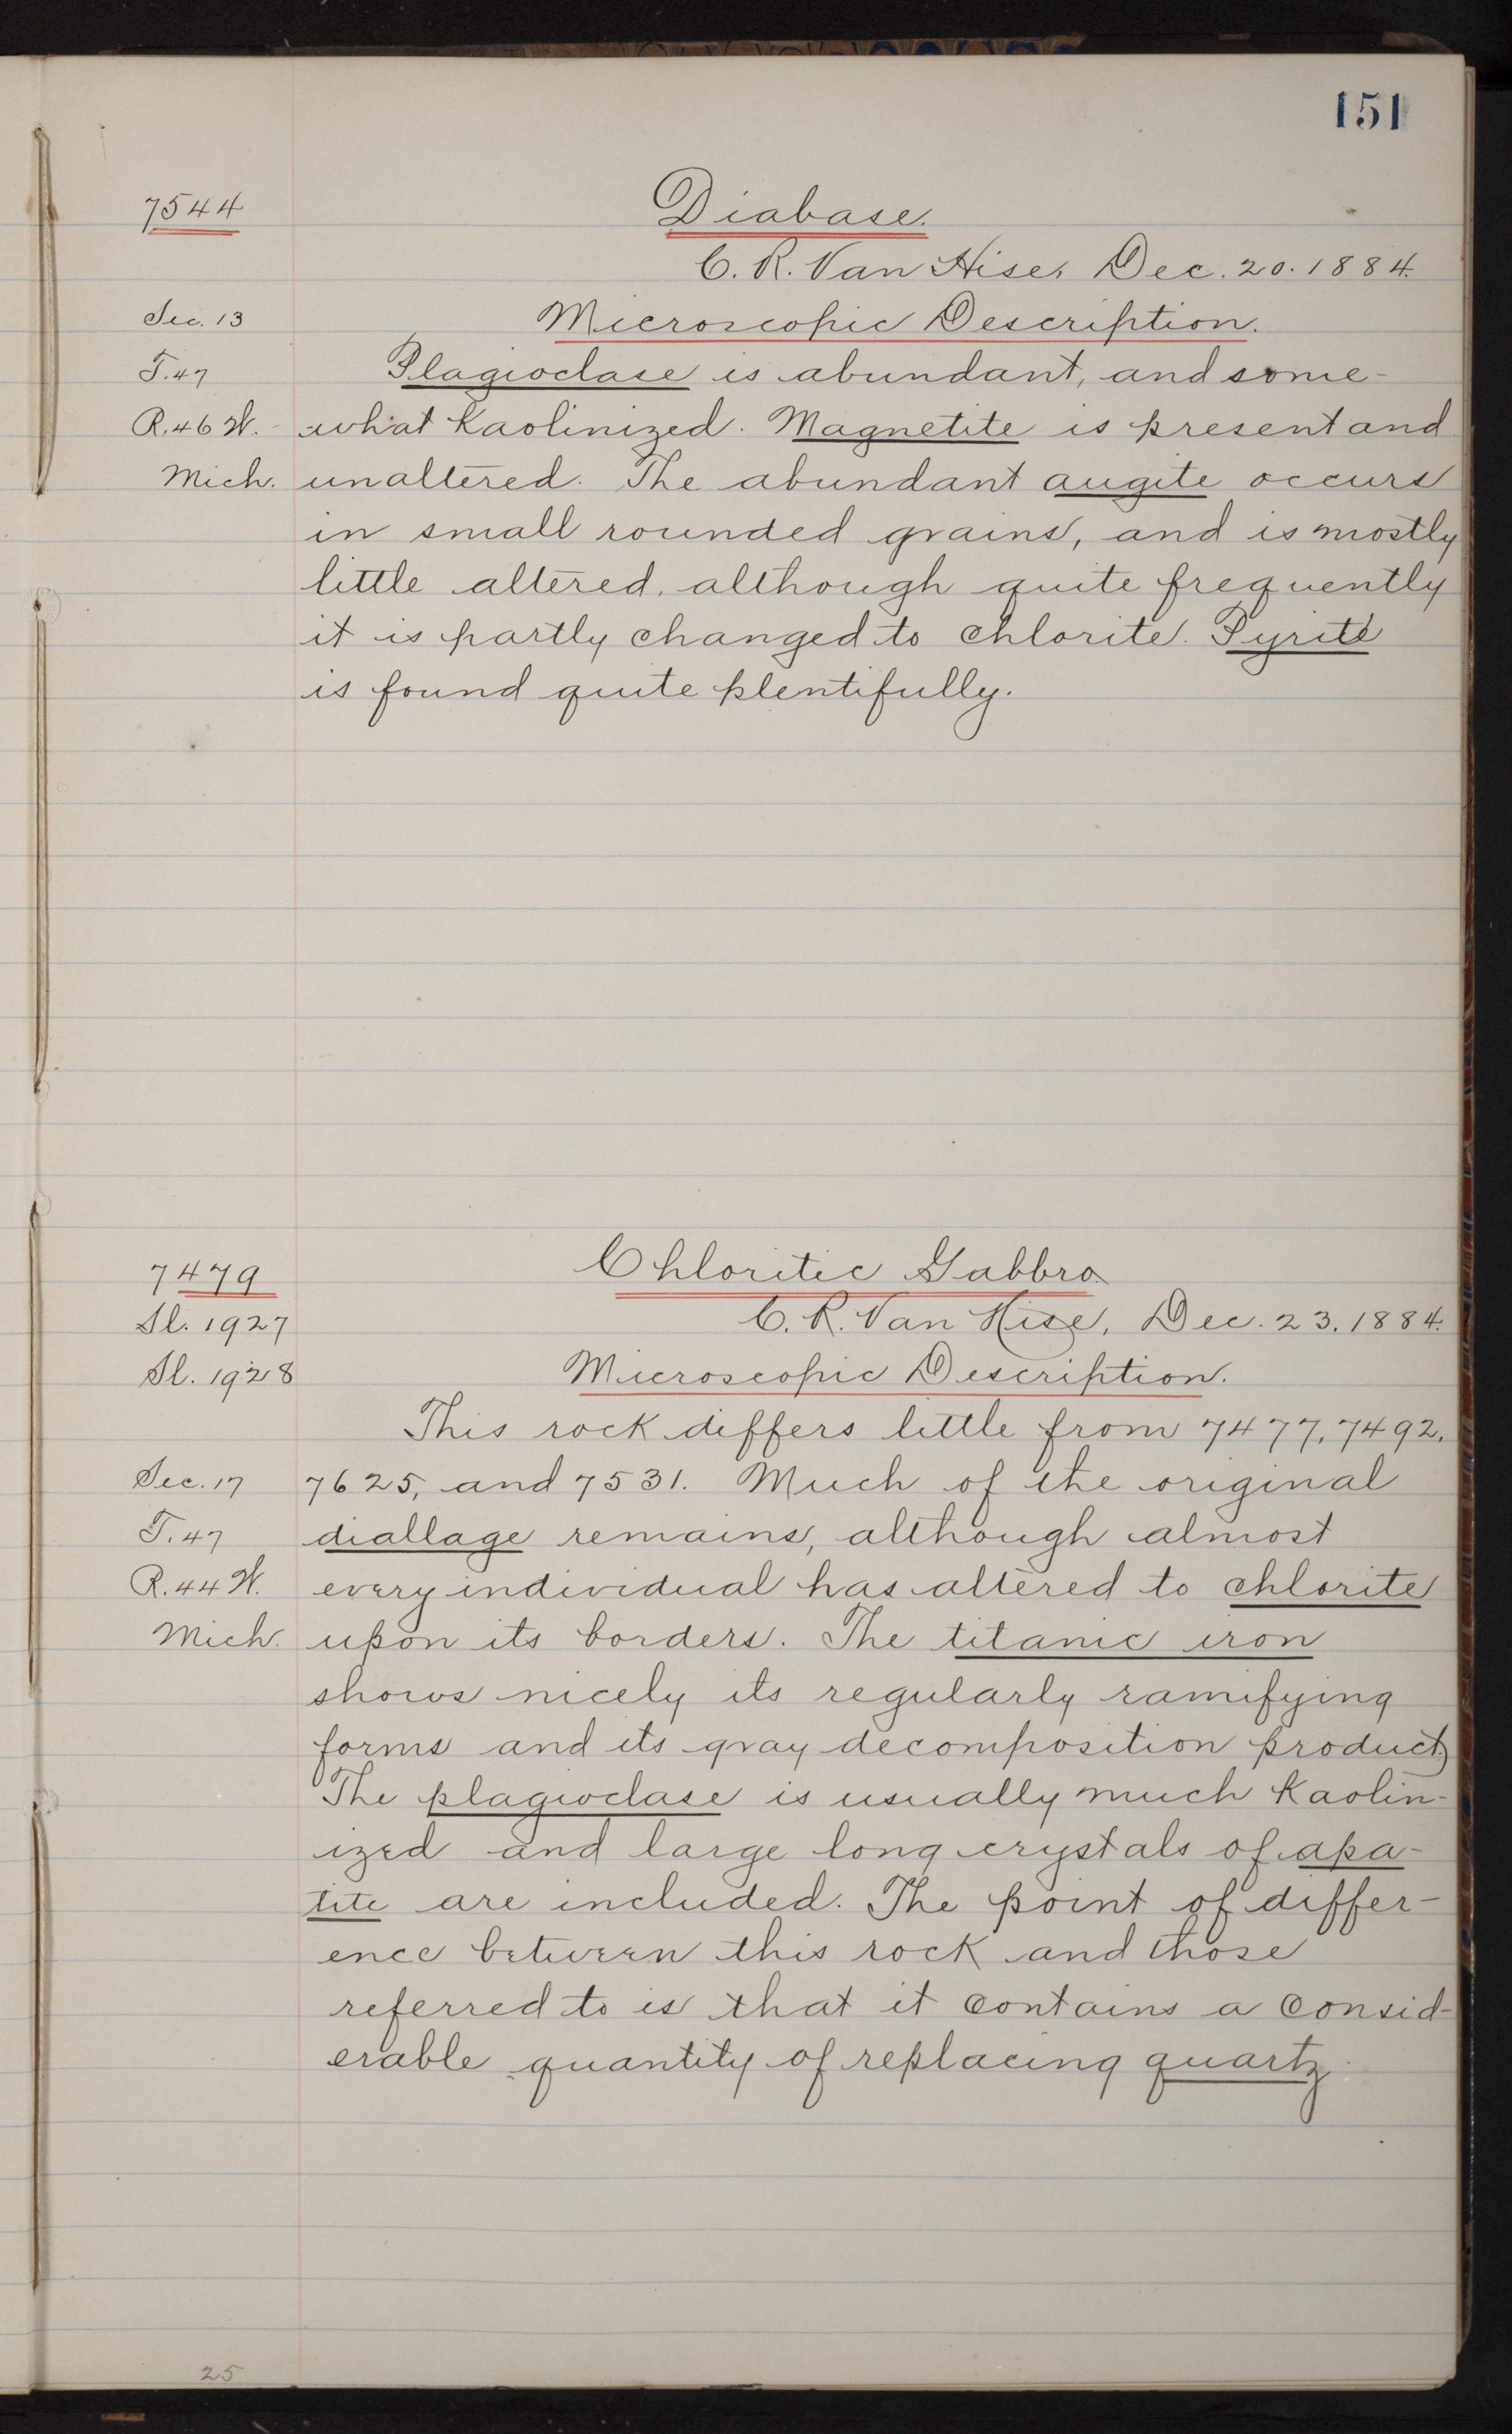 151
7544 Diabase.
C. R. Van Hise, Dec. 20. 1884.
Sec. 13 Microscopic Description.
T. 47 Plagioclase is abundant, and some-
R. 46 W. what Kaolinized. Magnetite is present and
Mich. unaltered. The abundant augite occurs
in small rounded grains, and is mostly
little altered, although quite frequently
it is partly changed to chlorite. Pyrite
is found quite plentifully.
7479 Chloritic Gabbro.
Sl. 1927 C. R. Van Hise, Dec. 23. 1884.
Sl. 1928 Microscopic Description.
This rock differs little from 7477, 7492,
Sec. 17 7625, and 7531. Much of the original
T. 47 diallage remains, although almost
R. 44 W. every individual has altered to chlorite
Mich. upon its borders. The titanic iron
shows nicely its regularly ramifying
forms and its gray decomposition product.
The plagioclase is usually much Kaolin-
ized and large long crystals of apa-
tite are included. The point of differ-
ence between this rock and those
referred to is that it contains a consid-
erable quantity of replacing quartz.
25